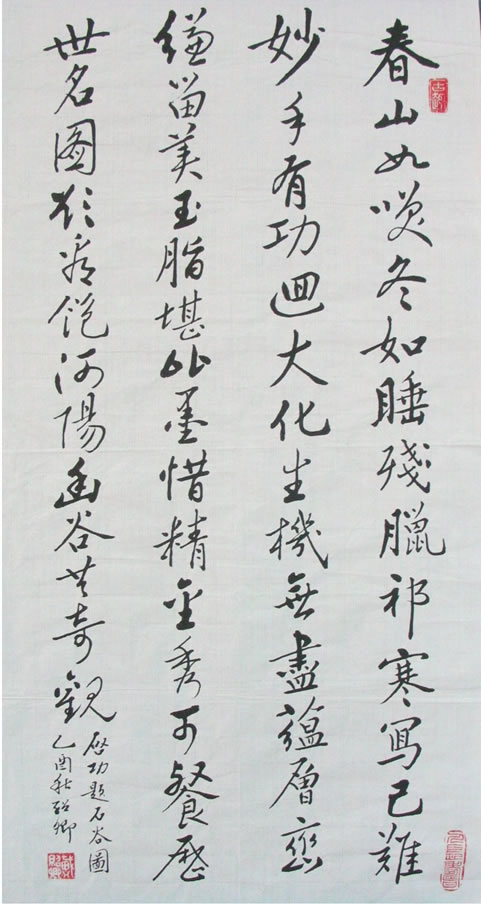 春山如咲冬如睡殘臘祁寒寫已難
妙手有功迴大化生機無盡蘊層巒
縑留美玉脂堪比墨惜精金秀可餐歷
世名圖欣看飽河陽幽谷共奇觀
啟功題石谷圖
乙酉秋